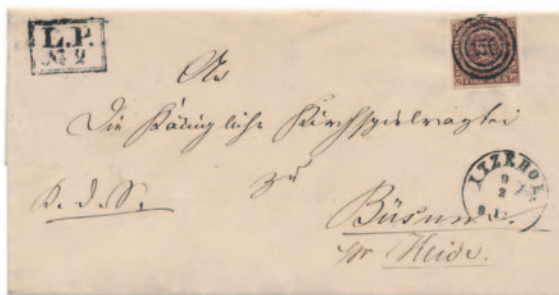 L.P.
№ 2
An
Die Königliche Kirchspielvogtei
K. d. S.
zu
Büsum
pr Heide.
ITZEHOE
9
2